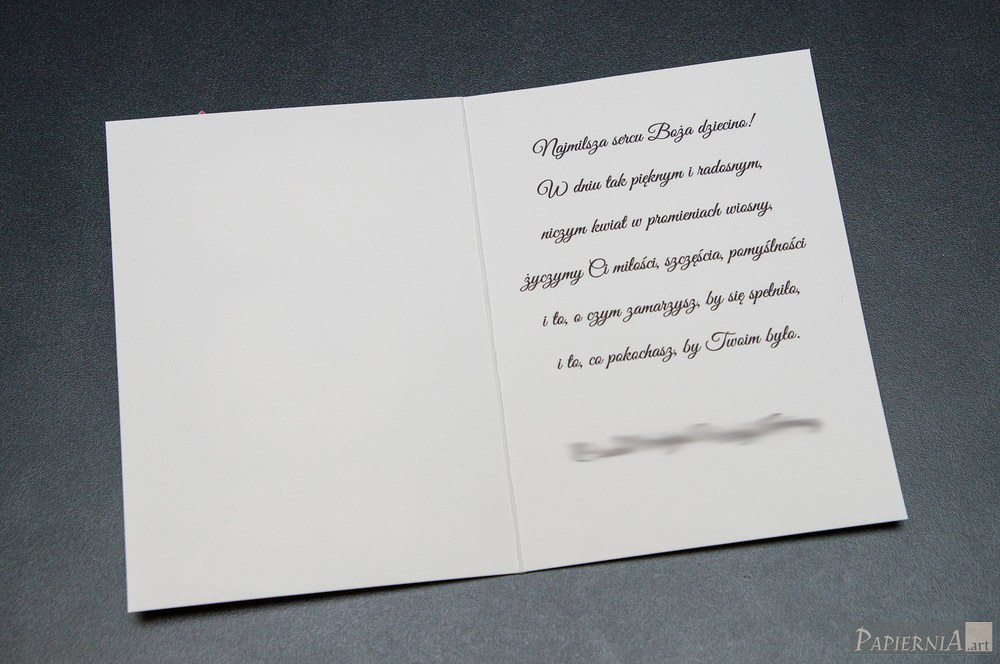 Najmilsza sercu Boża dziecino!
W dniu tak pięknym i radosnym,
niczym kwiat w promieniach wiosny,
życzymy Ci miłości, szczęścia, pomyślności
i to, o czym zamarzysz, by się spełniło,
i to, co pokochasz, by Twoim było.
PAPIERNIA.art